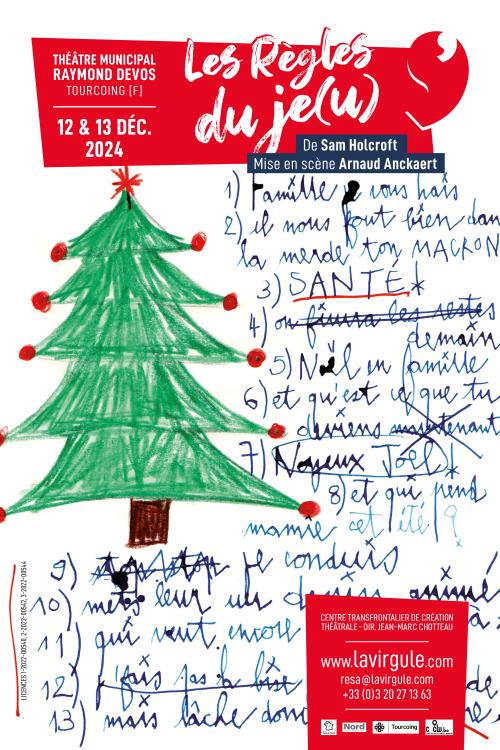 THÉÂTRE MUNICIPAL
RAYMOND DEVOS
TOURCOING [F]
12 & 13 DÉC.
2024
Les Règles
du je(u)
De Sam Holcroft
Mise en scène Arnaud Anckaert
1) Famille je vous hais
2) il nous fout bien dans
la merde ton MACRON
3) SANTÉ
4) on finira les restes
demain
5) Noël en famille
6) et qu'est ce que tu
deviens maintenant
7) Noyeux Joël
8) et qui prend
mamie cet été ?
9) je conduis
10) mets leur un dessin animé
11) qui veut encore
12) fais pas la bise
13) mais lâche donc
LICENCES 1-2022-00540, 2-2022-00542, 3-2022-00544
CENTRE TRANSFRONTALIER DE CRÉATION
THÉÂTRALE - DIR. JEAN-MARC CHOTTEAU
www.lavirgule.com
resa@lavirgule.com
+33 (0)3 20 27 13 63
Nord
Tourcoing